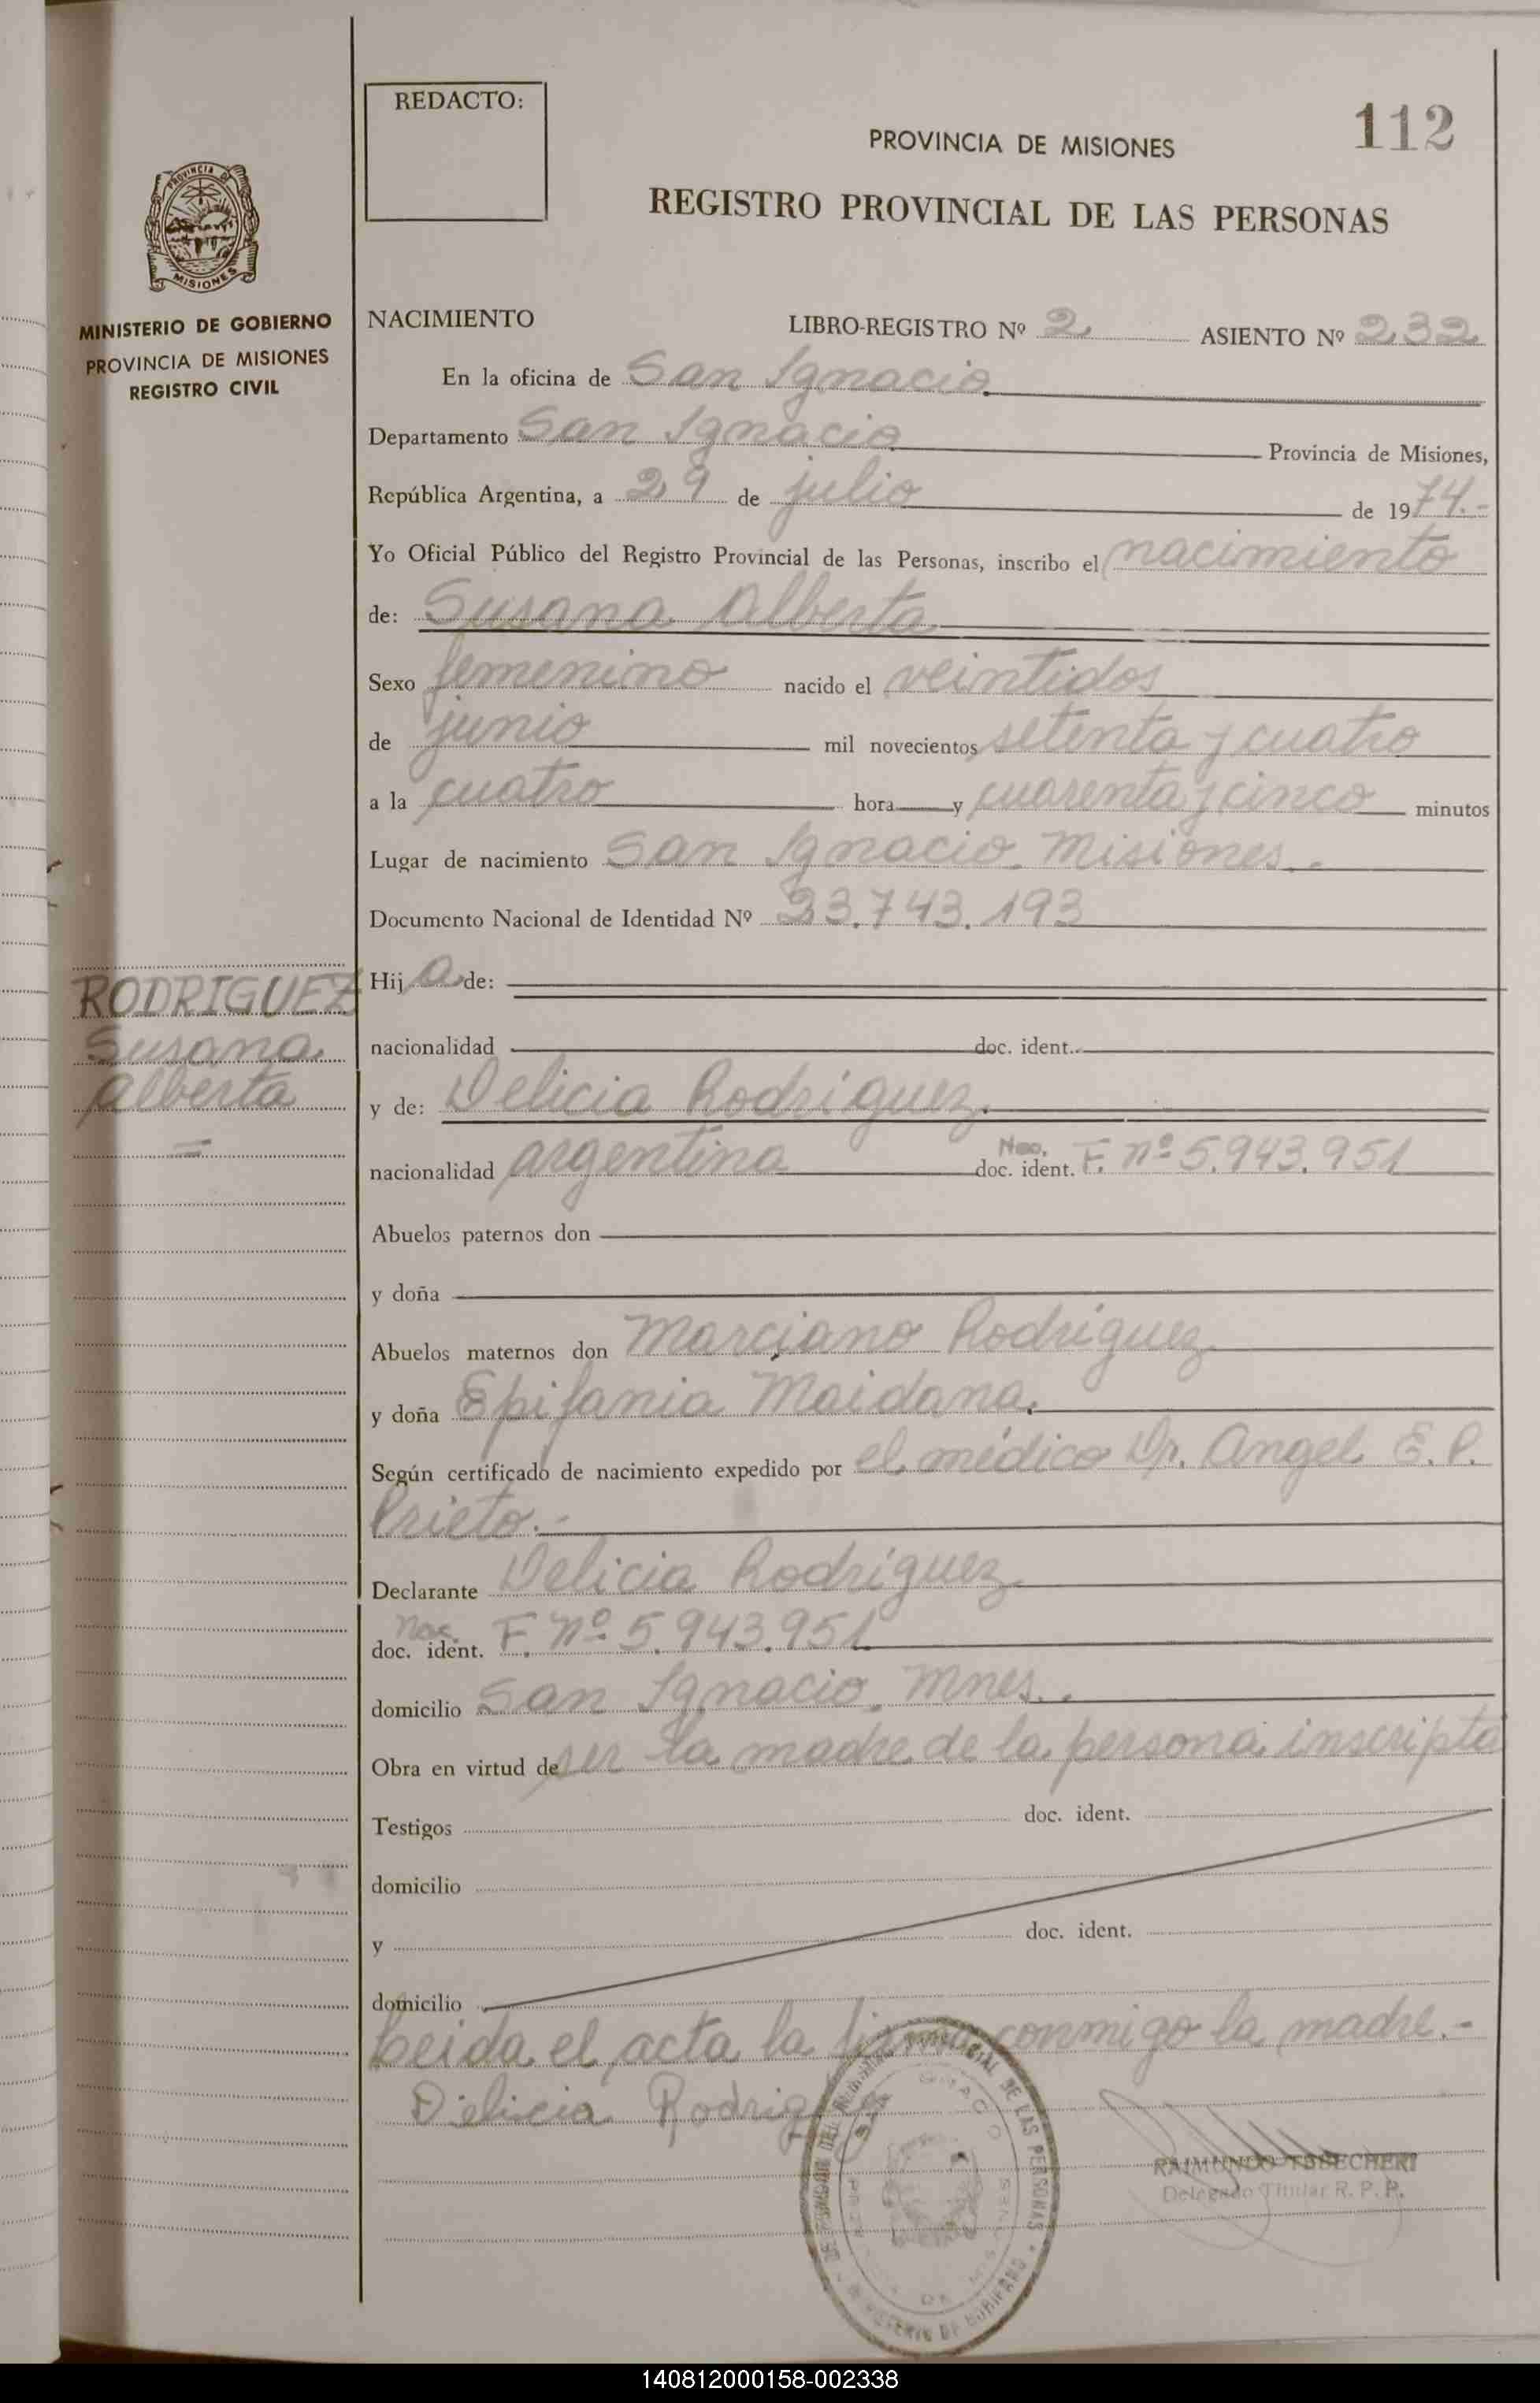 REDACTO:
112
PROVINCIA DE MISIONES
REGISTRO PROVINCIAL DE LAS PERSONAS
PROVINCIA DE
MISIONES
MINISTERIO DE GOBIERNO
PROVINCIA DE MISIONES
REGISTRO CIVIL
NACIMIENTO LIBRO-REGISTRO Nº 2 ASIENTO Nº 232
En la oficina de San Ignacio
Departamento San Ignacio Provincia de Misiones,
República Argentina, a 29 de julio de 1974.-
Yo Oficial Público del Registro Provincial de las Personas, inscribo el nacimiento
de: Susana Alberta
Sexo femenino nacido el veintidos
de junio mil novecientos setenta y cuatro
a la cuatro hora y cuarenta y cinco minutos
Lugar de nacimiento San Ignacio Misiones.
Documento Nacional de Identidad Nº 23.743.193
RODRIGUEZ
Susana
Alberta
Hija de:
nacionalidad doc. ident.
y de: Delicia Rodríguez.
nacionalidad argentina doc. ident. F. nº 5.943.951
Abuelos paternos don
y doña
Abuelos maternos don Marciano Rodríguez
y doña Epifania Maidana.
Según certificado de nacimiento expedido por el médico Dr. Angel E. P.
Prieto.-
Declarante Delicia Rodríguez
doc. ident. F. Nº 5.943.951
domicilio San Ignacio, Mnes.
Obra en virtud de ser la madre de la persona inscripta
Testigos doc. ident.
domicilio
y doc. ident.
domicilio
Leida el acta la firma conmigo la madre.-
Delicia Rodriguez
PROVINCIAL DE LAS PERSONAS
MINISTERIO DE GOBIERNO
RAIMUNDO
Delegado Titular R. P. P.
140812000158-002338